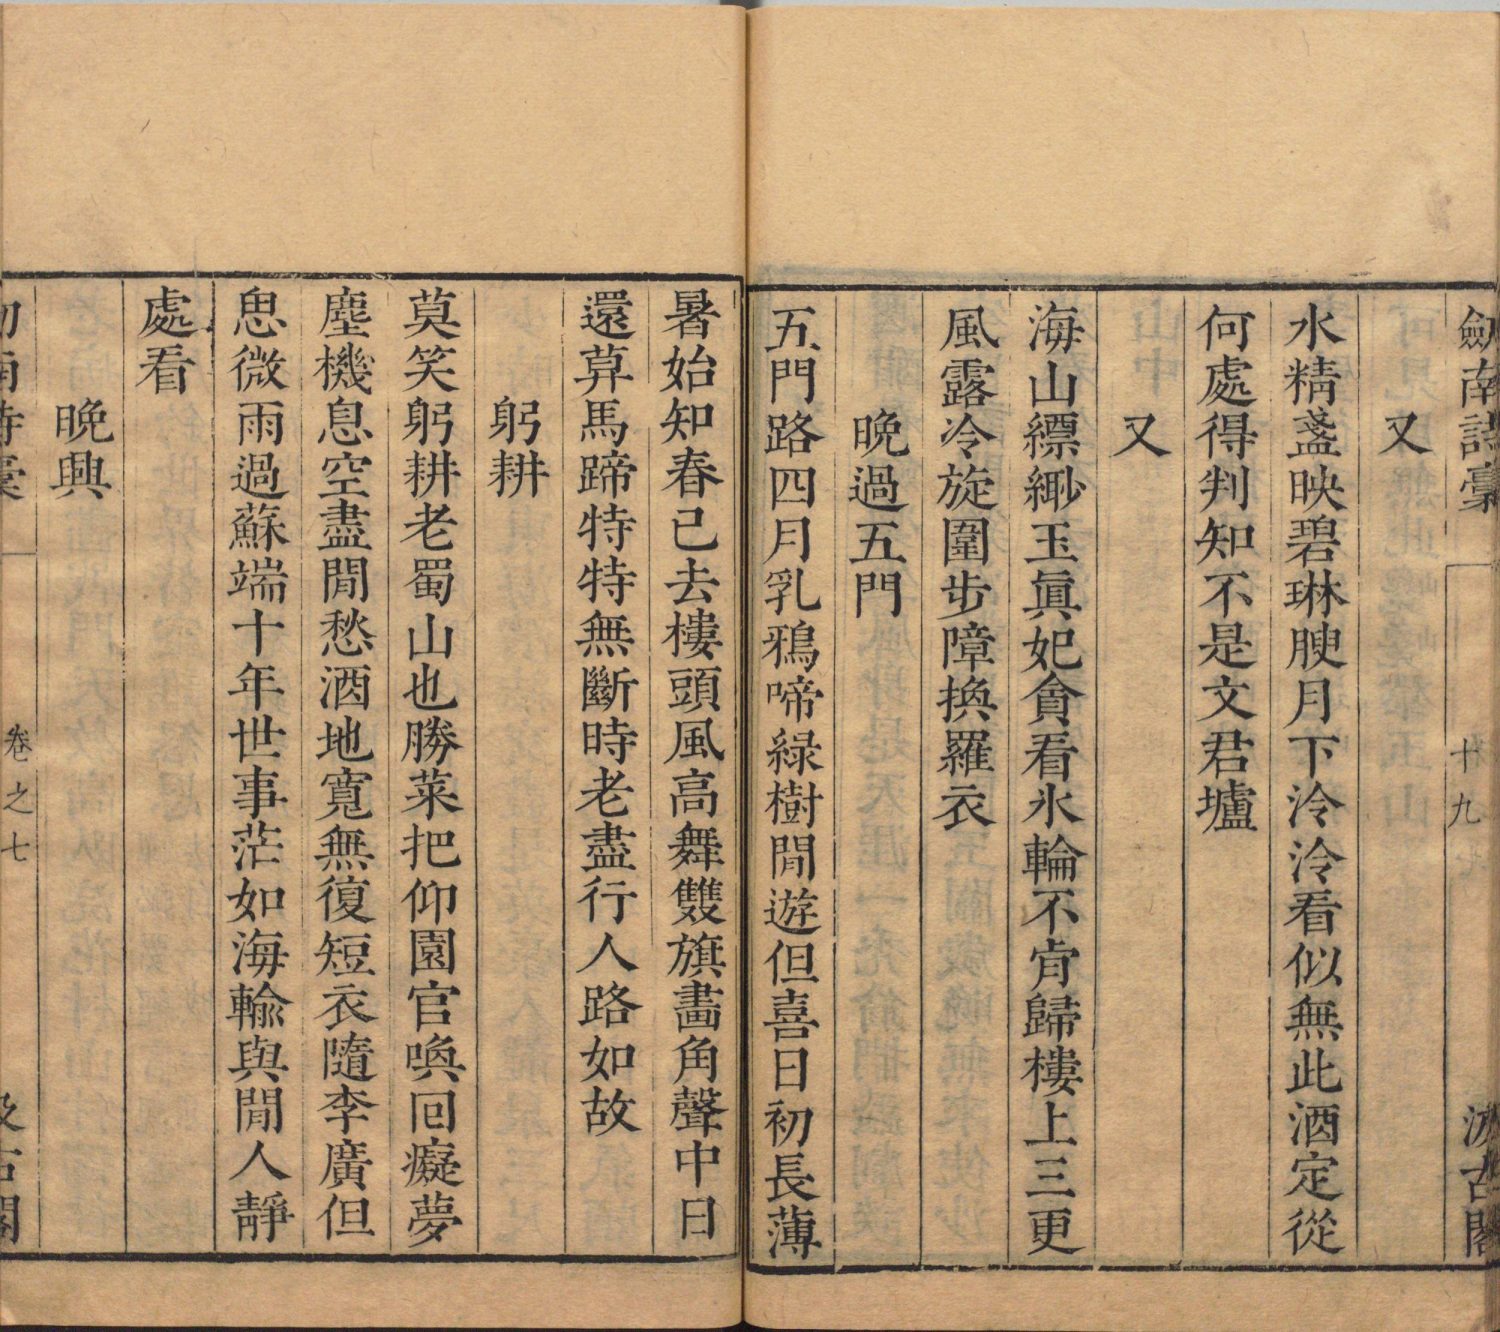 劍南詩稾
十九
汲古閣
又
水精盞映碧琳腴月下泠泠看似無此酒定從
何處得判知不是文君壚
又
海山縹緲玉眞妃貪看氷輪不肯歸樓上三更
風露冷旋圍步障換羅衣
晚過五門
五門路四月乳鴉啼綠樹閒遊但喜日初長薄
暑始知春已去樓頭風高舞雙旗畵角聲中日
還算馬蹄特特無斷時老盡行人路如故
躬耕
莫笑躬耕老蜀山也勝菜把仰園官喚回癡夢
塵機息空盡閒愁酒地寬無復短衣隨李廣但
思微雨過蘇端十年世事茫如海輸與閒人靜
處看
晚興
劍南詩稾
卷之七
汲古閣